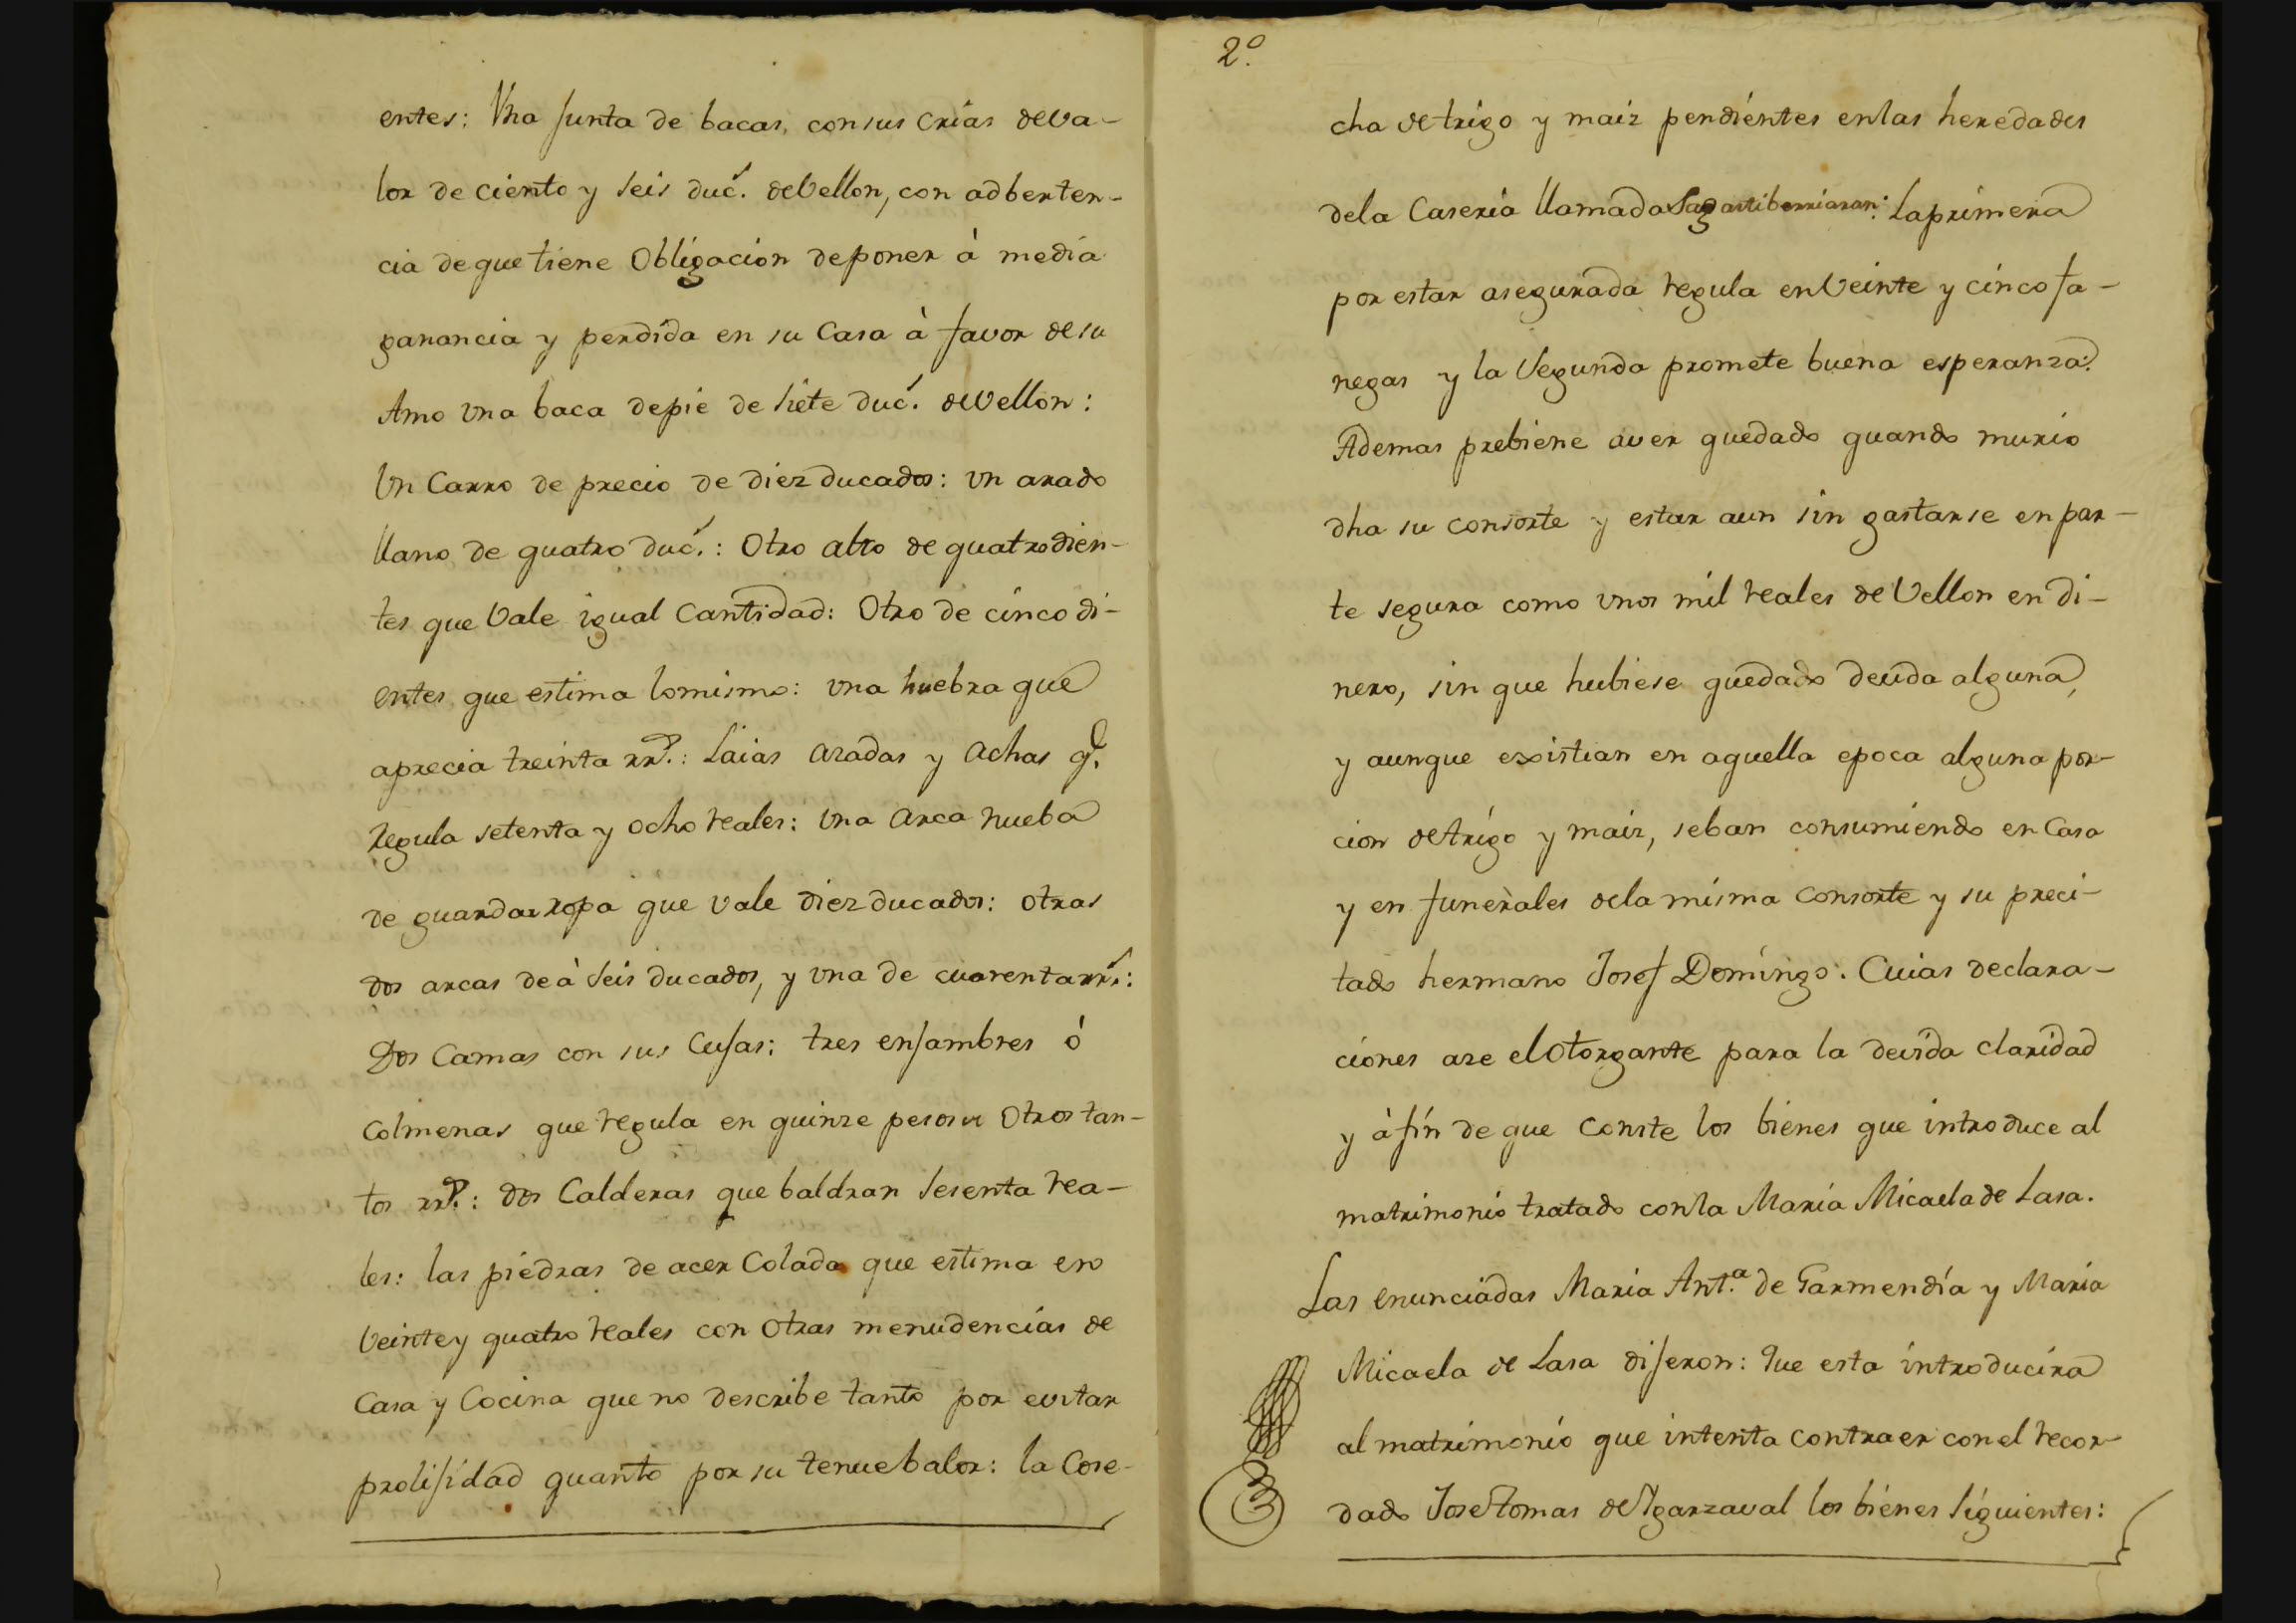 entes: Una Junta de bacas, con sus Crias de va-
lor de ciento y seis duc.ˢ de Vellon, con adberten-
cia de que tiene Obligacion de poner à media
ganancia y perdida en su Casa à favor de su
Amo una baca de pie de siete duc.ˢ de Vellon:
Un Carro de precio de diez ducados: un arado
llano de quatro duc.ˢ: Otro alto de quatro dien-
tes que Vale igual Cantidad: Otro de cinco di-
entes que estima lo mismo: una huebra que
aprecia treinta rr.ˢ: Laias Azadas y Achas q.ᵉ
regula setenta y ocho reales: una Arca nueba
de guardar ropa que vale diez ducados: otras
dos arcas de à seis ducados, y una de cuarenta rr.ˢ:
Dos Camas con sus Cujas: tres enjambres ó
Colmenas que regula en quinze pesos Otros tan-
tos rr.ˢ: dos Calderas que baldran sesenta rea-
les: las piedras de acer Colada que estima en
Veinte y quatro reales con Otras menudencias de
Casa y Cocina que no describe tanto por evitar
prolijidad quanto por su tenue balor: la Cose-
2.º
cha de trigo y maiz pendientes en las heredades
de la Caseria llamada Sagastiberriaran: La primera
por estar asegurada regula en Veinte y cinco fa-
negas y la Segunda promete buena esperanza:
Ademas prebiene aver quedado quando murio
dha su consorte y estar aun sin gastarse en par-
te segura como unos mil reales de Vellon en di-
nero, sin que hubiese quedado deuda alguna,
y aunque existian en aquella epoca alguna por-
cion de trigo y maiz, se ban consumiendo en Casa
y en funerales de la misma Consorte y su preci-
tado hermano Josef Domingo: Cuias declara-
ciones aze el Otorgante para la devida claridad
y à fin de que Conste los bienes que introduce al
matrimonio tratado con la Maria Micaela de Lasa.
Las enunciadas Maria Ant.ª de Garmendia y Maria
Micaela de Lasa dijeron: Que esta introducira
al matrimonio que intenta Contraer con el recor-
dado Jose Tomas de Ygarzaval los bienes siguientes: